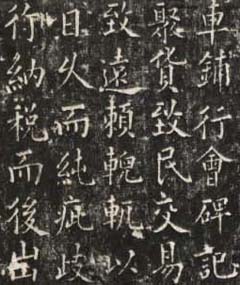 車鋪行會碑記
聚貨致民交易
致遠頼輗軏以
日久而純疵歧
行納税而後出